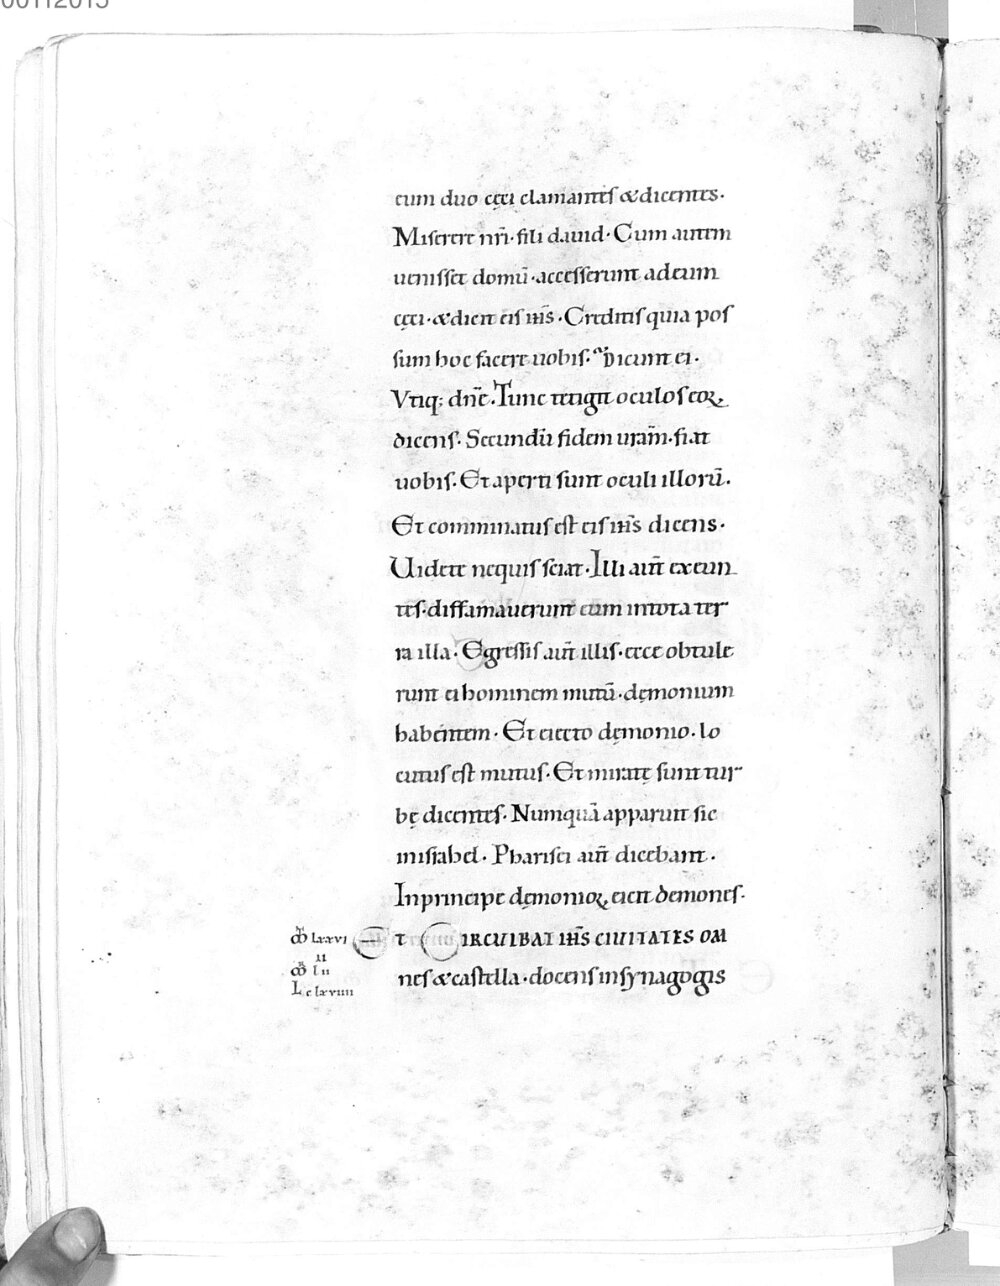 00112015
eum duo cęci clamantes & dicentes.
Miserere nr̄i. fili dauid. Cum autem
uenisset domū. accesserunt adeum
cęci. & dicit eis ih̄s. Creditis quia pos
sum hoc facere uobis. Dicunt ei.
Vtiq; dn̄e. Tunc tetigit oculos eoꝝ
dicens. Secundū fidem uram̄. fiat
uobis. Et aperti sunt oculi illorū.
Et comminatus est eis ih̄s dicens.
Uidete nequis sciat. Illi aut̄ exeun
tes. diffamauerunt eum intota ter
ra illa. Egressis aut̄ illis. ecce obtule
runt ei hominem mutū. dęmonium
habentem. Et eiecto dęmonio. lo
cutus est mutus. Et miratę sunt tur
bę dicentes. Numquā apparuit sic
inisrahel. Pharisei aut̄ dicebant.
Inprincipe dęmonioꝝ eicit demones.
lxxvi ET CIRCUIBAT IH̄S CIUITATES OM
II
nes & castella. docens insynagogis
l ii
L c lxviiii